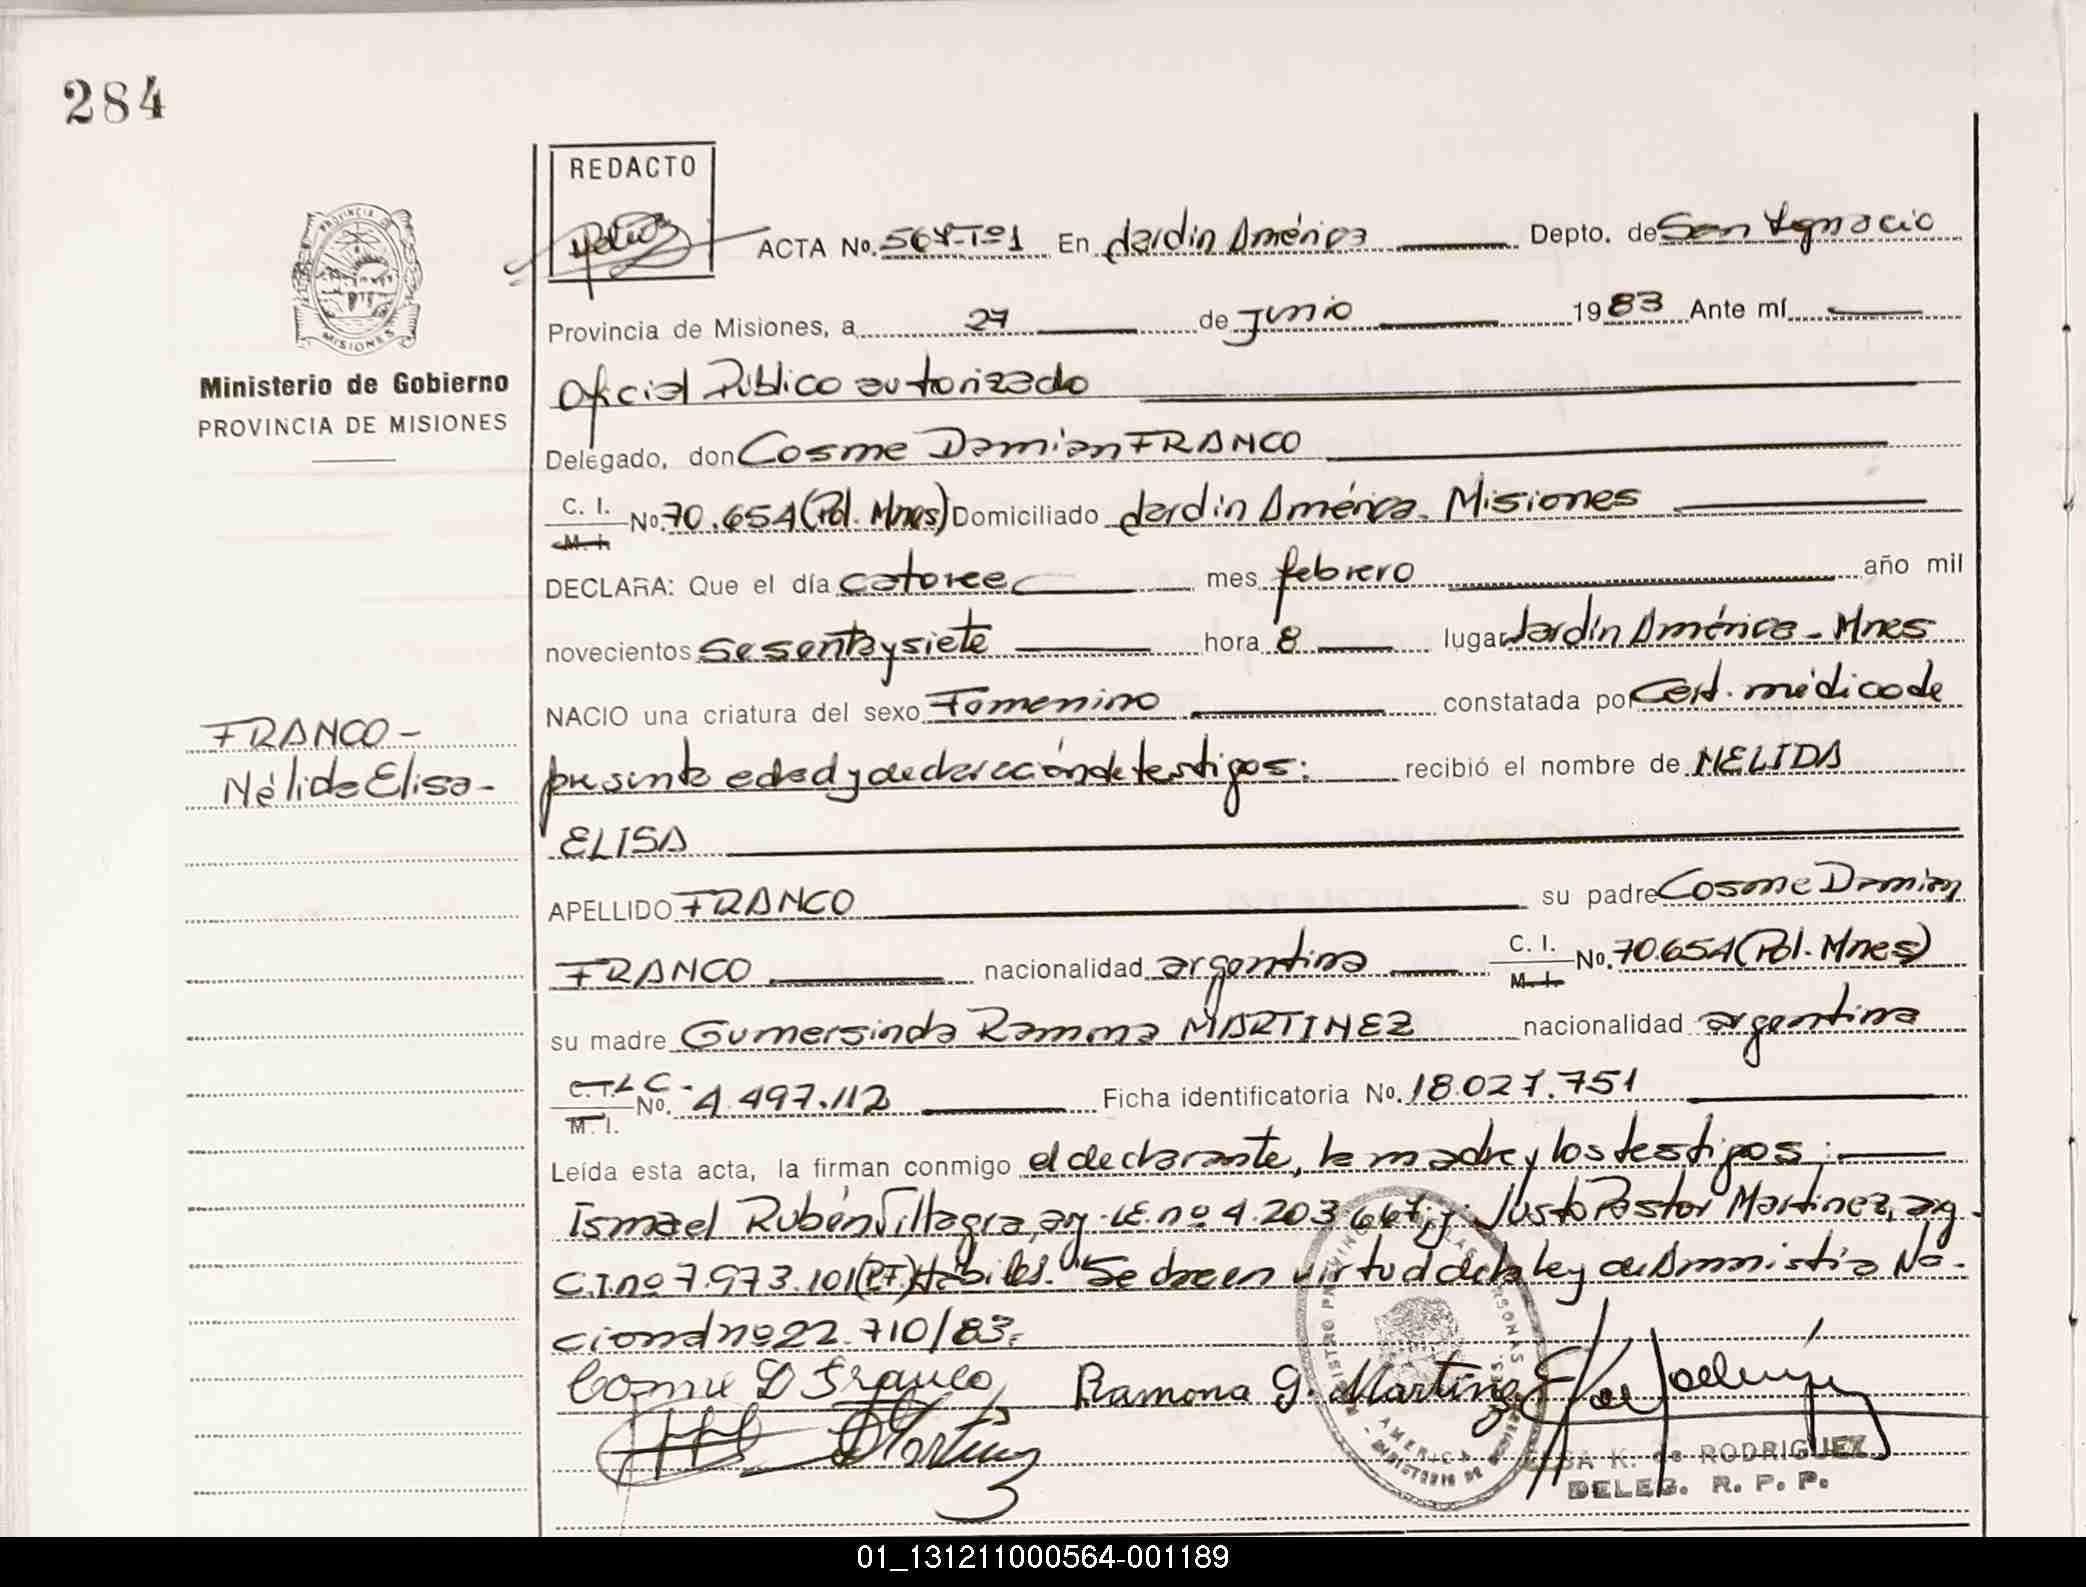 284
REDACTO
ACTA No. 567-Tº1 En Jardin América Depto. de San Ignacio
Provincia de Misiones, a 27 de junio 1983 Ante mí
Oficial Público autorizado
PROVINCIA DE
MISIONES
Ministerio de Gobierno
PROVINCIA DE MISIONES
Delegado, don Cosme Damian FRANCO
C. I. No. 70.654 (Pol. Mnes) Domiciliado Jardin América. Misiones
M. I.
DECLARA: Que el día catorce mes febrero año mil
novecientos sesenta y siete hora 8 lugar Jardín América - Mnes
NACIO una criatura del sexo Femenino constatada por Cert. médico de
FRANCO -
Nélida Elisa -
presunta edad y declaración de testigos: recibió el nombre de NELIDA
ELISA
APELLIDO FRANCO su padre Cosme Damian
FRANCO nacionalidad argentina C. I. No. 70.654 (Pol. Mnes)
M. I.
su madre Gumersinda Ramona MARTINEZ nacionalidad argentina
C. I. L C. No. 4.497.112 Ficha identificatoria No. 18.027.751
M. I.
Leída esta acta, la firman conmigo el declarante, la madre y los testigos:
Ismael Rubén Villagra, arg. LE. nº 4.203.667, y Justo Pastor Martinez, arg.
C.I. nº 7.973.101 (P.F.) Hábiles. "Se dra en virtud de la ley de Amnistía Na-
cional nº 22.710/83.
Cosme D Franco Ramona G. Martinez
Martinez
K. de RODRIGUEZ
DELEG. R. P. P.
01_131211000564-001189